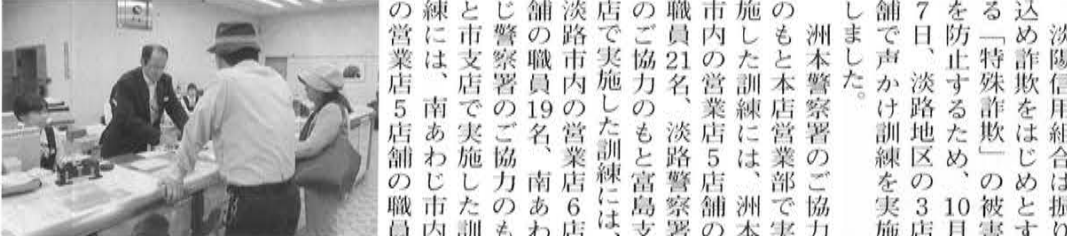 淡陽信用組合は振り
込め詐欺をはじめとす
る「特殊詐欺」の被害
を防止するため、10月
7日、淡路地区の3店
舗で声かけ訓練を実施
しました。
洲本警察署のご協力
のもと本店営業部で実
施した訓練には、洲本
市内の営業店5店舗の
職員21名、淡路警察署
のご協力のもと富島支
店で実施した訓練には、
淡路市内の営業店6店
舗の職員19名、南あわ
じ警察署のご協力のも
と市支店で実施した訓
練には、南あわじ市内
の営業店5店舗の職員